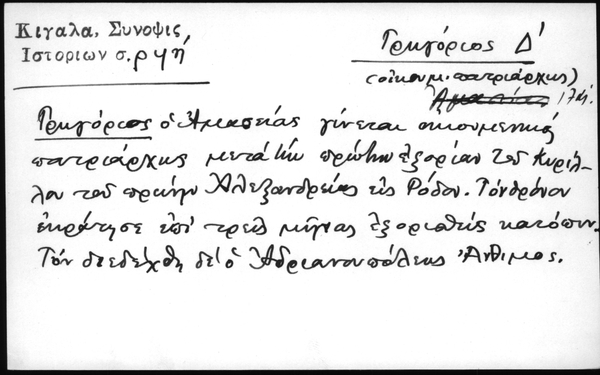 Κιγαλα, Συνοψις
Ιστοριων σ. ρμή
Γρηγόριος Δ'
(οἰκουμ. πατριάρχης)
Ἀμασείας 17 αἰ.
Γρηγόριος ὁ Ἀμασείας γίνεται οἰκουμενικός
πατριάρχης μετά τήν πρώτην ἐξορίαν τοῦ Κυρίλ-
λου τοῦ πρώην Ἀλεξανδρείας εἰς Ρόδον. Τόν θρόνον
ἐκράτησε ἐπί τρεῖς μῆνας ἐξορισθείς κατόπιν.
Τόν διεδέχθη δέ ὁ Ἀδριανουπόλεως Ἄνθιμος.